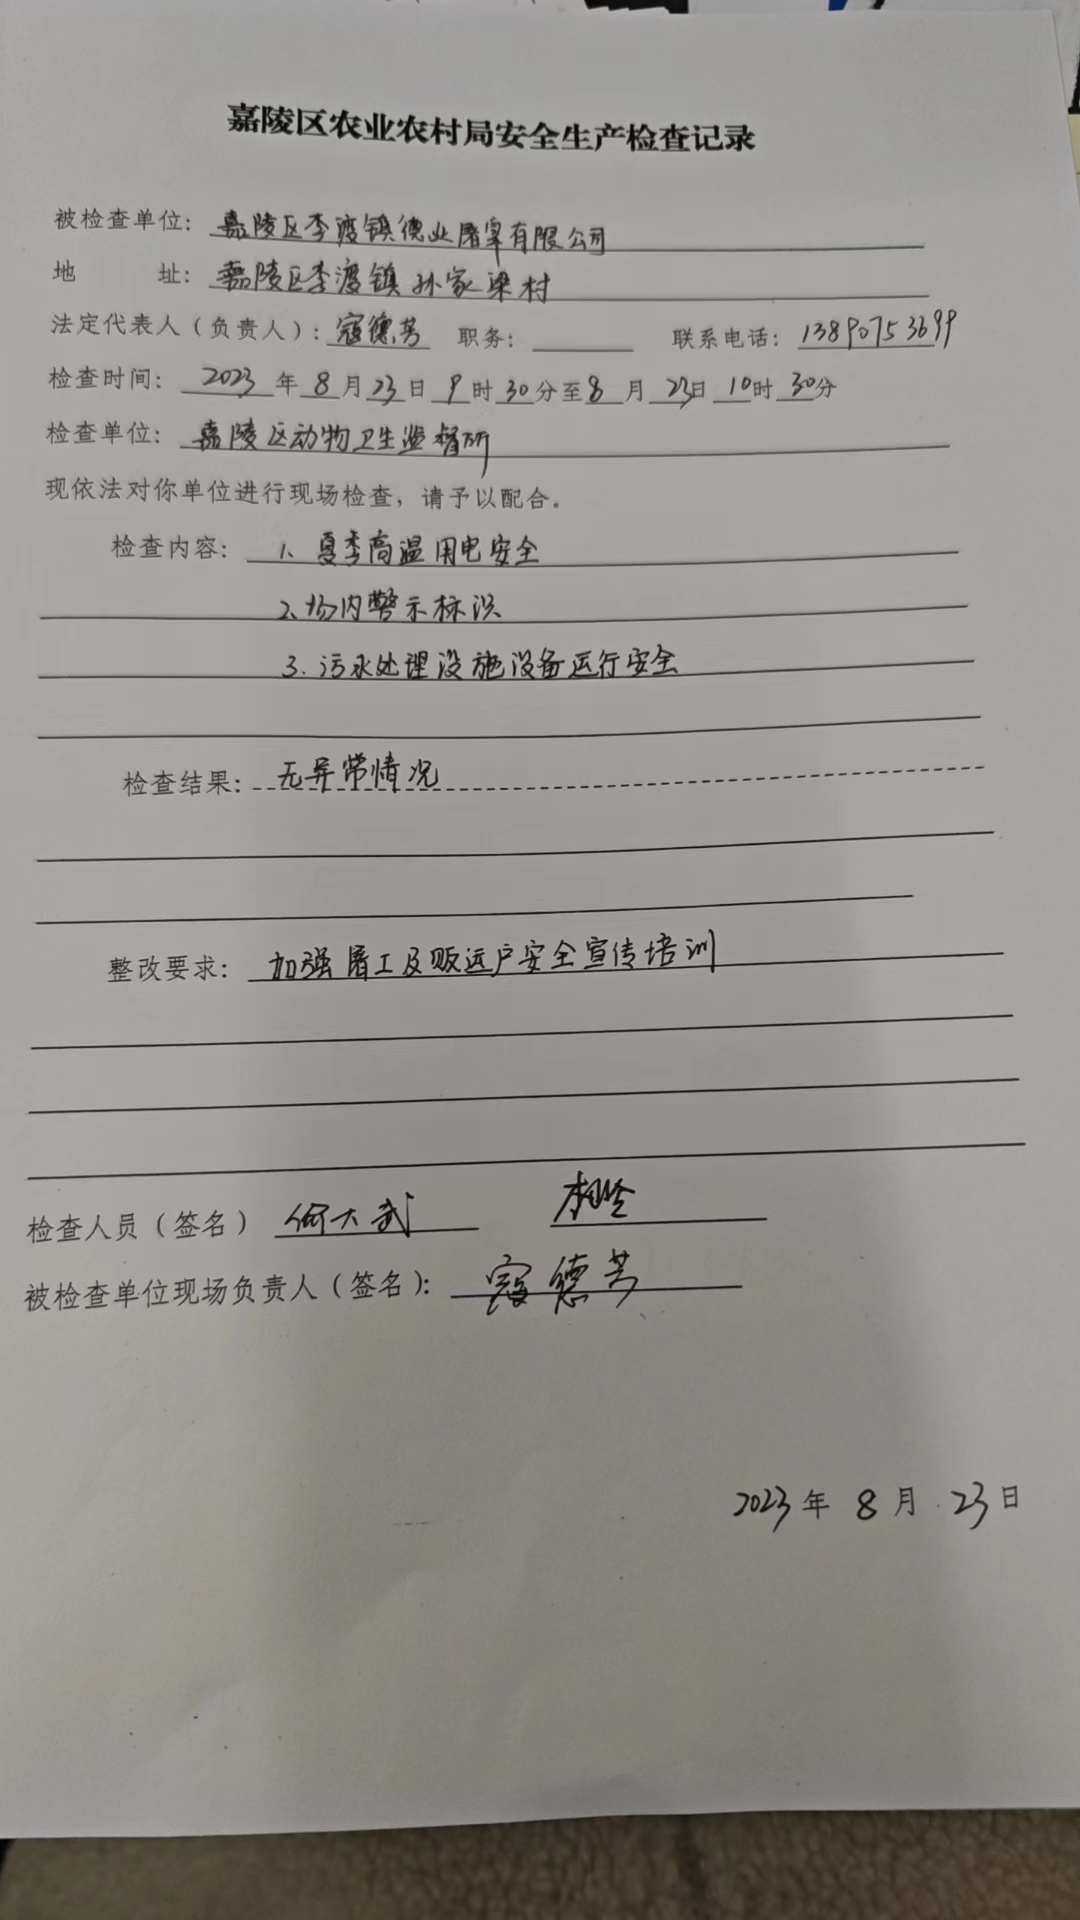 嘉陵区农业农村局安全生产检查记录
被检查单位：嘉陵区李渡镇德业屠宰有限公司
地 址：嘉陵区李渡镇孙家梁村
法定代表人（负责人）：寇德芳 职务： 联系电话：13890753699
检查时间：2023年8月23日9时30分至8月23日10时30分
检查单位：嘉陵区动物卫生监督所
现依法对你单位进行现场检查，请予以配合。
检查内容：1、夏季高温用电安全
2、场内警示标识
3.污水处理设施设备运行安全
检查结果：无异常情况
整改要求：加强屠工及贩运户安全宣传培训
检查人员（签名）何大武
被检查单位现场负责人（签名）：寇德芳
2023年8月23日